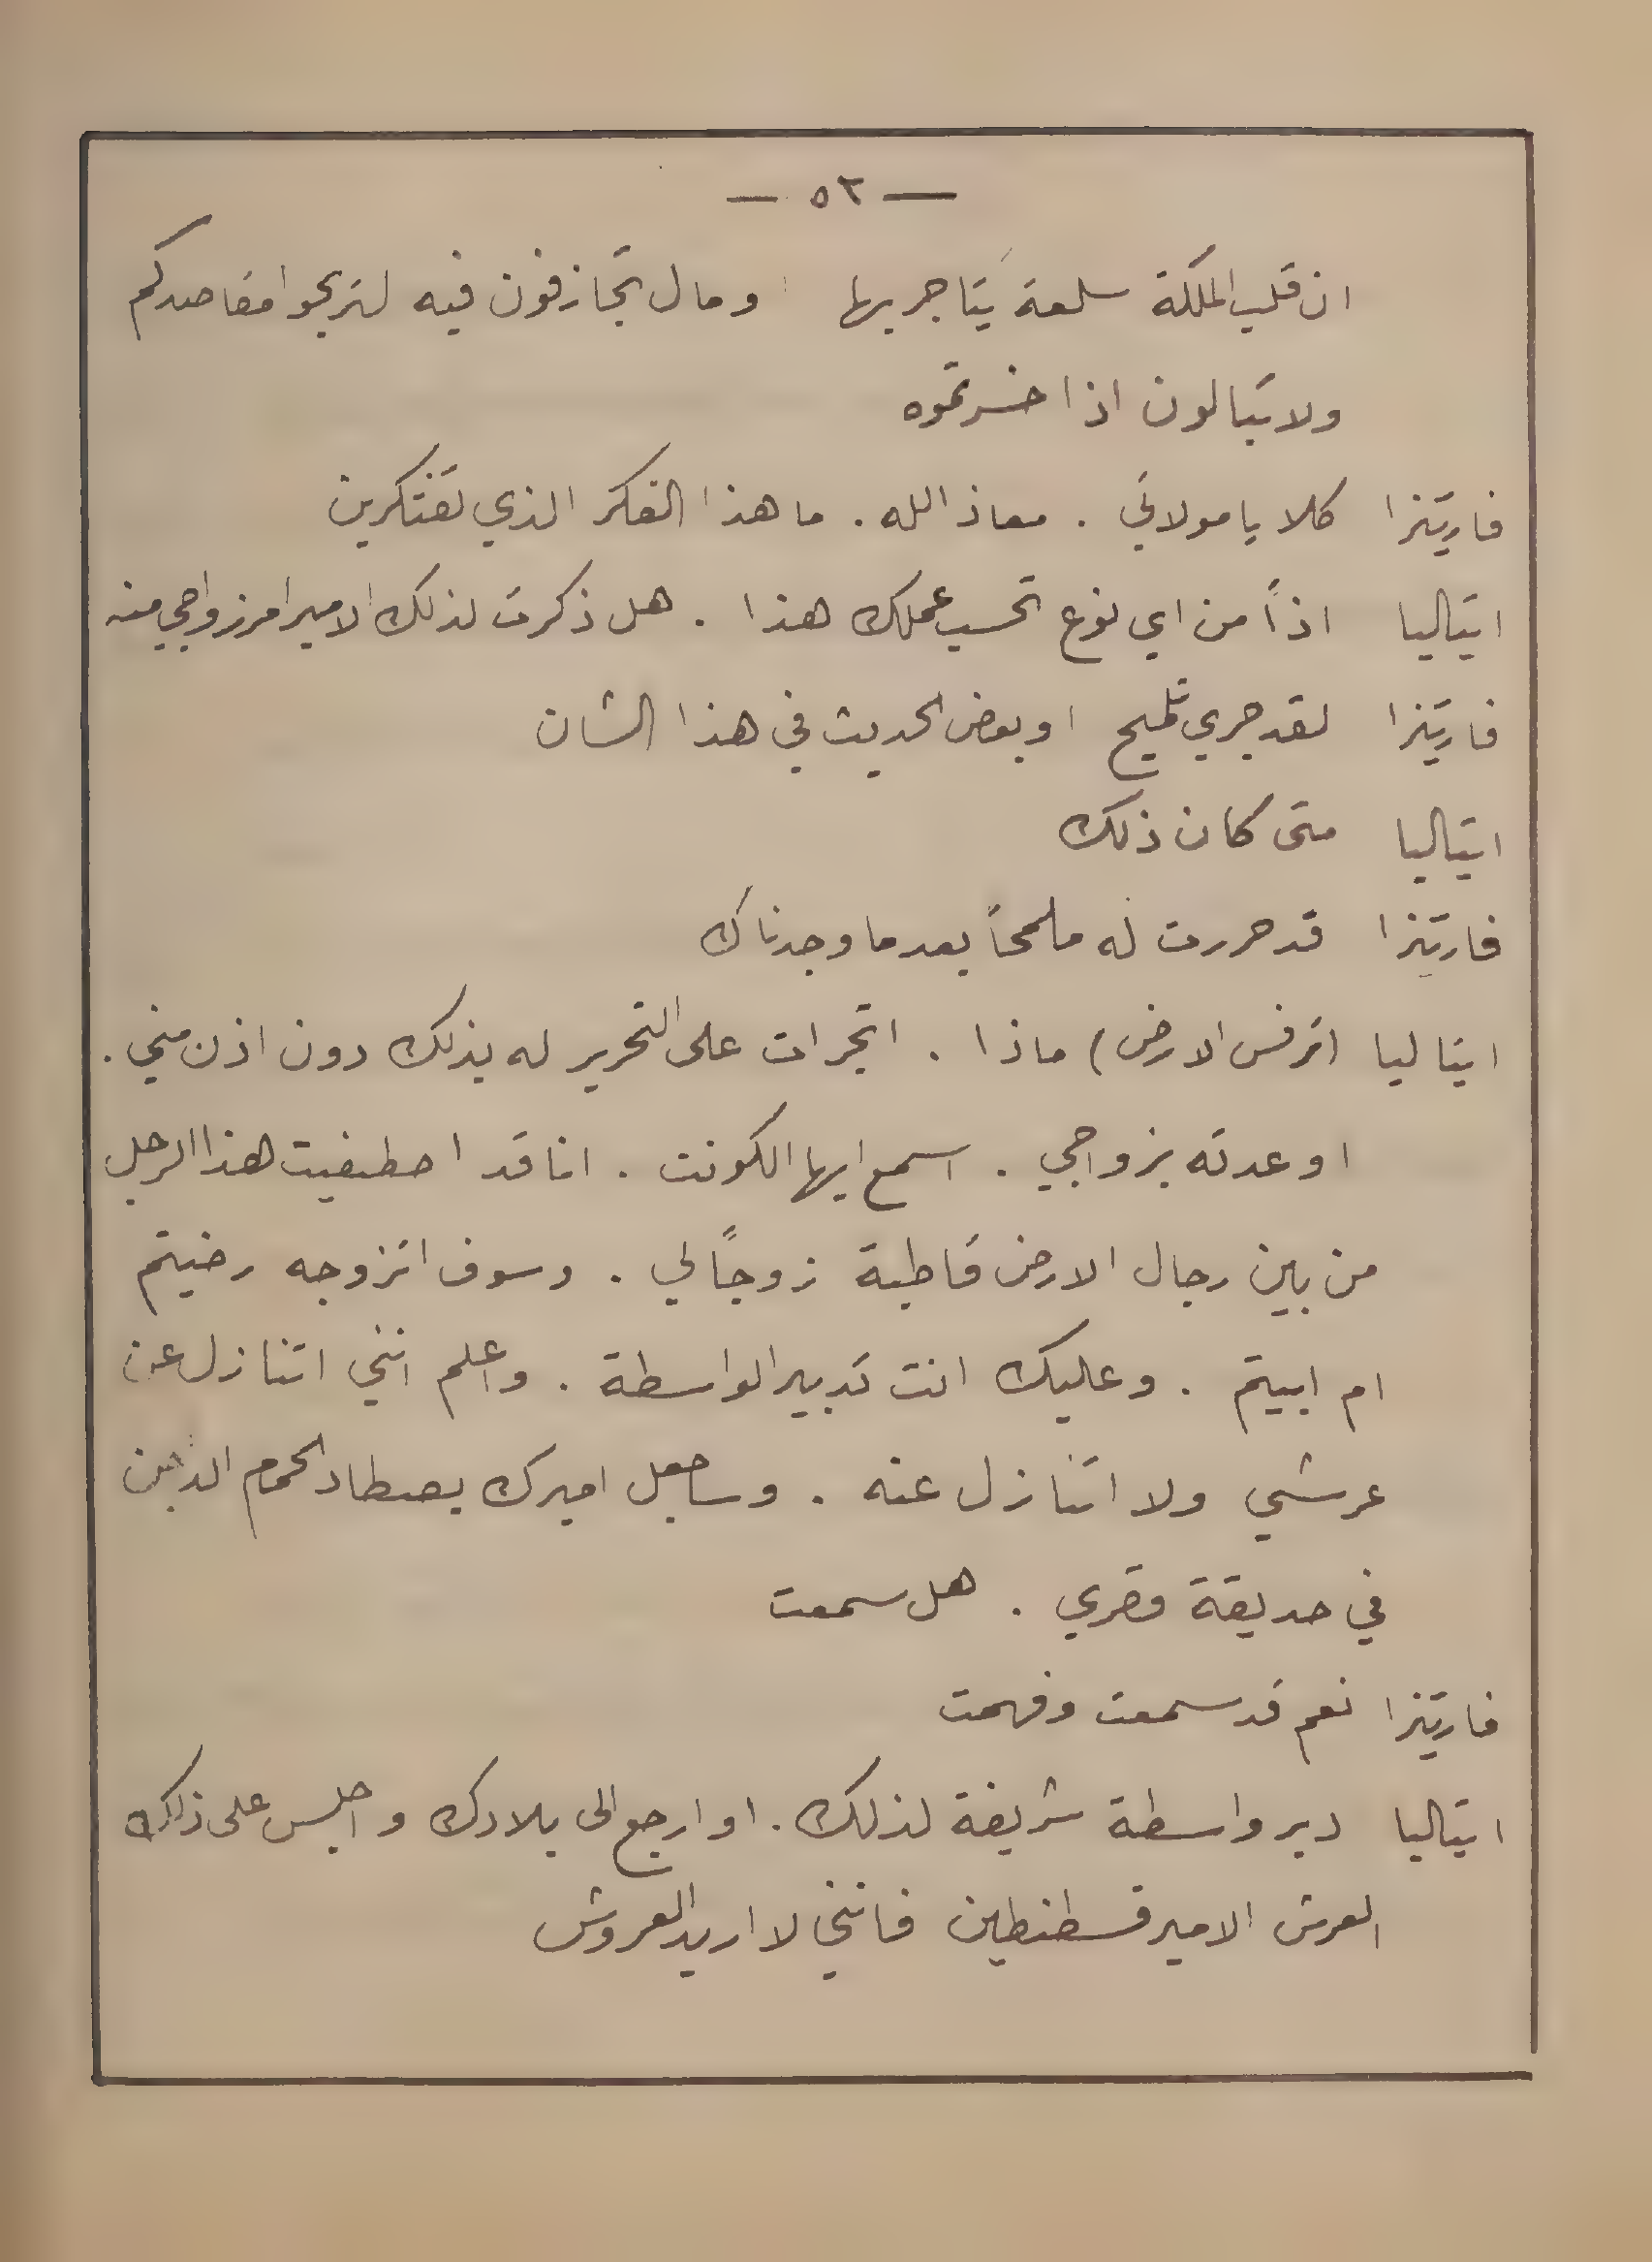 — ٥٣ —
ان قلب الملكة سلعة يتاجر بها او مال تجازفون فيه لتربحوا مقاصدكم
ولا تبالون اذا خسرتموه
فارتيزا كلا يا مولاتي . معاذ الله . ما هذا الفكر الذي تفتكرين
ايتاليا اذاً من اي نوع تحسب عملك هذا . هل ذكرت لذلك الامير امر زواجي منه
فارتيزا لقد جرى تلميح او بعض الحديث في هذا الشان
ايتاليا متى كان ذلك
فارتيزا قد حررت له ملمحاً بعد ما وجدناك
ايتاليا (ترفس الارض) ماذا . اتجرات على التحرير له بذلك دون اذن مني .
اوعدته بزواجي . اسمع ايها الكونت . انا قد اصطفيت هذا الرجل
من بين رجال الارض قاطبة زوجاً لي . وسوف اتزوجه رضيتم
ام ابيتم . وعليك انت تدبير الواسطة . واعلم انني اتنازل عن
عرشي ولا اتنازل عنه . وساجعل اميرك يصطاد الحمام الداجن
في حديقة قصري . هل سمعت
فارتيزا نعم قد سمعت وفهمت
ايتاليا دبر واسطة شريفة لذلك . او ارجع الى بلادك واجلس على ذلك
العرش الامير قسطنطين فانني لا اريد العروش